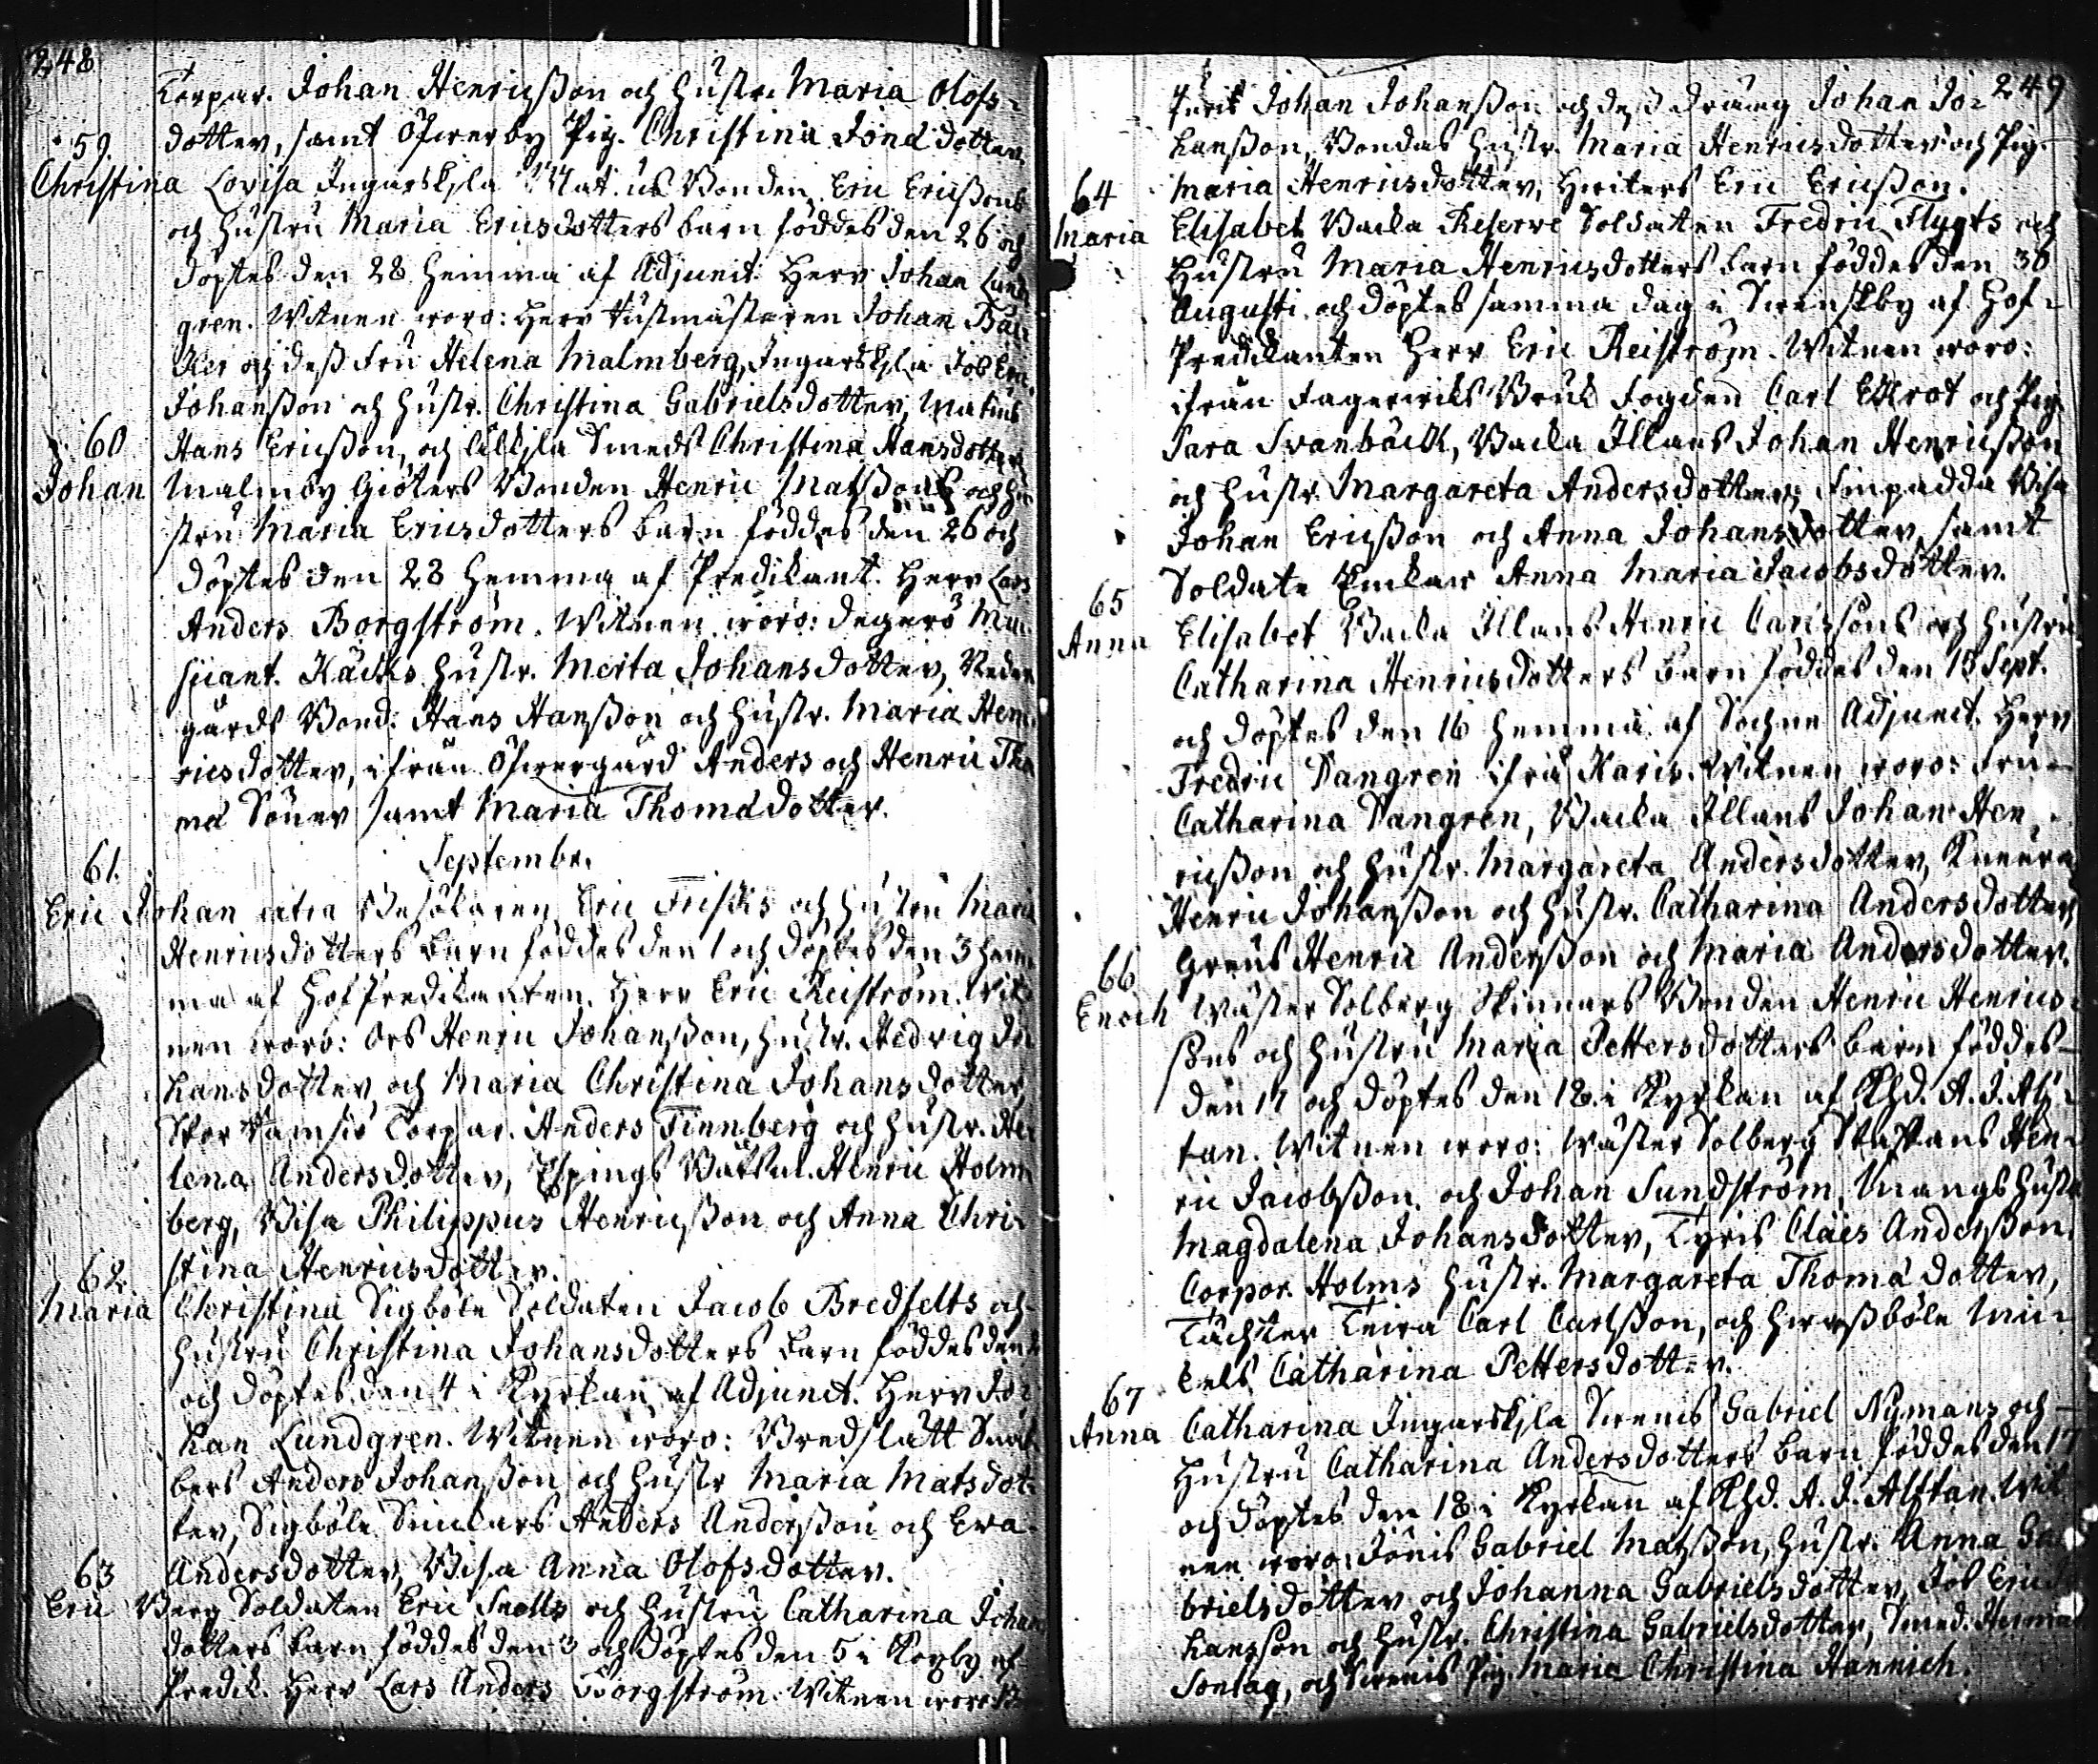 248
Corpor. Johan Henricsson och hustr. Maria Olofs-
dotter, samt Öfwerby Pig. Christina Jona dotter.
59.
Christina Lovisa Ingarskila Mat us Bonden Eric Ericssons
och hustru Maria Ericsdotters barn föddes den 26 och
döptes den 28 hemma af Adjunct. Herr Johan Lund
gren. Witnen woro: Herr Tustmästaren Johan Bäc
ker och dess Fru Helena Malmberg, Ingarskila Job Eric
Johansson och hustr. Christina Gabrielsdotter,
60
Hans Ericsson, och Lillkila Smeds Christina Hansdotter
Johan Malmby Giöters Bonden Henric Matssons och hu
stru Maria Ericsdotters barn föddes den 26 och
döptes den 28 hemma af Predikant. Herr Lars
Anders Borgström. Witnen woro: Degerö Mu
sicant. Käcks hustr. Merta Johansdotter, Neder
gårds Bond. Hans Hansson och hustr. Maria Hen
ricsdotter, ifrån Öfwergård Anders och Henric Tho
mæ Söner samt Maria Thomædotter.
Septembr.
61.
Eric Johan Eric Frisks och hustru Maria
Henricsdotters barn föddes den 1 och döptes den 3 hem
ma af Hof Predikanten Herr Eric Reiström. Wit
nen woro: Ors Henric Johansson, hustr. Hedvig Jo
hansdotter och Maria Christina Johansdotter,
Corpor. Anders Finnberg och hustr. He
lena Andersdotter, Espings Henric Holm
berg, Bisa Philippus Henricsson och Anna Chri-
stina Henricsdotter.
62
Maria Christina Sigböle Soldaten Jacob Bredfelts och
hustru Christina Johansdotters barn föddes den
och döptes den 4 i Kyrkan af Adjunct. Herr Jo-
han Lundgren. Witnen woro: Bredslätt
bers Anders Johansson och hustr Maria Matsdot-
ter, Sigböle Anders Andersson och Eva
63
Andersdotter, Bisa Anna Olofsdotter.
Eric Berg Soldaten Eric Snells och hustru Catharina Johan
dotters barn föddes den 3 och döptes den 5 i Köpby af
Predik. Herr Lars Anders Borgström. Witnen woro
249
Johan Johansson och dess dräng Johan Jo-
hansson, Bondas hustr. Maria Henricsdotter och Pig.
64
Maria Henricsdotter, Eric Ericsson.
Maria Elisabet Backa Reserve Soldaten Fredric Flygts och
hustru Maria Henricsdotters barn föddes den 30
Augusti och döptes samma dag i Swenskby af Hof-
Predikanten Herr Eric Reiström. Witnen woro:
ifrån Fagerwiks Bruk Fogden Carl Ekrot och Pig.
Sara Svanbäck, Backa Illans Johan Henricsson
och hustr. Margareta Andersdotter, Finpadda Bisa
Johan Ericsson och Anna Johansdotter, samt
Soldate Enckan Anna Maria Jacobsdotter.
65
Anna Elisabet Backa Illans Henric Carlssons och hustru
Catharina Henricsdotters barn föddes den 15 Sept.
och döptes den 16 hemma af Sochne Adjunct. Herr
Fredric Dangren ifrå Karis. Witnen woro: Fru
Catharina Dangren, Backa Illans Johan Hen-
ricsson och hustr. Margareta Andersdotter,
Henric Johansson och hustr. Catharina Andersdotter,
66
Greus Henric Andersson och Maria Andersdotter.
Enoch Wäster Solberg Skinnars Bonden Henric Henrics-
sons och hustru Maria Pettersdotters barn föddes
den 17 och döptes den 18 i Kyrkan af Khd. A. J. Alf-
tan. Witnen woro: Wäster Solberg Staffans Hen-
ric Jacobsson och Johan Sundström, Mangs hustr
Magdalena Johansdotter, Tyris Claes Andersson,
Corpor. Holms hustr. Margareta Thomædotter,
Täckter Teira Carl Carlsson, och Mic-
kels Catharina Pettersdotter.
67
Anna Catharina Ingarskila Swenis Gabriel Nymans och
hustru Catharina Andersdotters barn föddes den 17
och döptes den 18 i Kyrkan af Khd. A. J. Alftan. Wit
nen woro: Jönis Gabriel Matsson, hustr. Anna Ga
brielsdotter och Johanna Gabrielsdotter, Job Eric Jo
hansson och hustr. Christina Gabrielsdotter, Smed. Herman
Sontag, och Swenis Pig. Maria Christina Hannich.